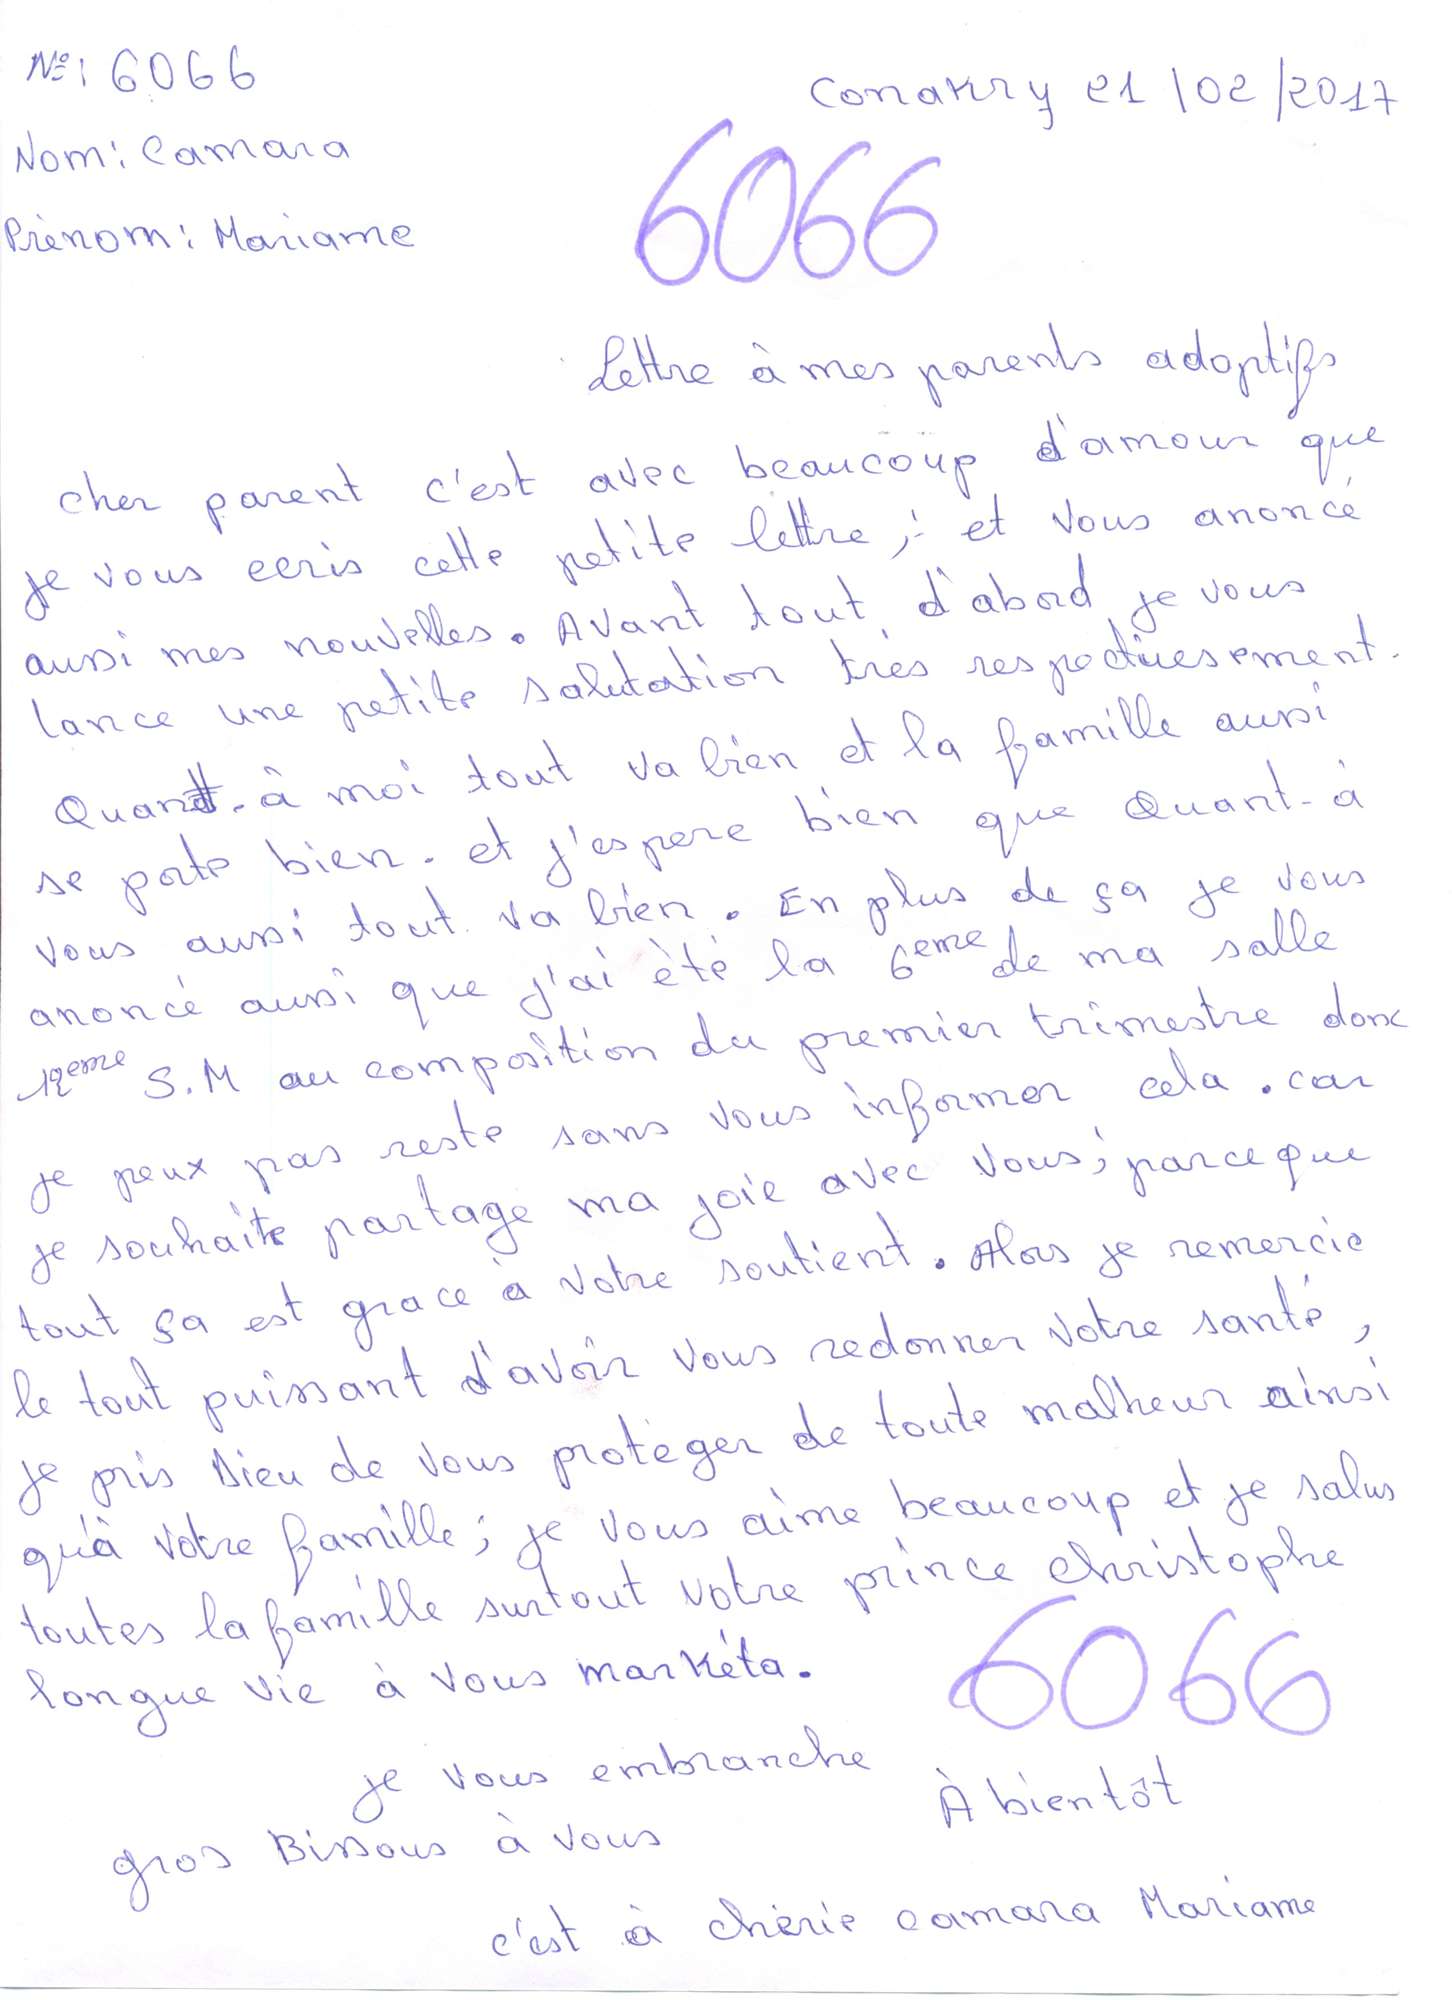 N°: 6066
Conakry 21/02/2017
Nom: Camara
6066
Prènom: Mariame
Lettre à mes parents adoptifs
cher parent c'est avec beaucoup d'amour que
je vous ecris cette petite lettre; et vous anoncé
aussi mes nouvelles. Avant tout d'abord je vous
lance une petite salutation très respectuesement.
Quant-à moi tout va bien et la famille aussi
se porte bien. et j'espere bien que Quant-à
vous aussi tout va bien. En plus de ça je vous
anoncé aussi que j'ai èté la 6eme de ma salle
12eme S.M au composition du premier trimestre donc
je peux pas reste sans vous informer cela. car
je souhaite partage ma joie avec vous; parceque
tout ça est grace à votre soutient. Alors je remercie
le tout puissant d'avoir vous redonner votre santé,
je pris Dieu de vous protèger de toute malheur ainsi
qu'à votre famille; je vous aime beaucoup et je salus
toutes la famille surtout votre prince christophe
longue vie à vous markéta.
6066
je vous embranche
À bientôt
gros Bissous à vous
c'est à chèrie camara Mariame